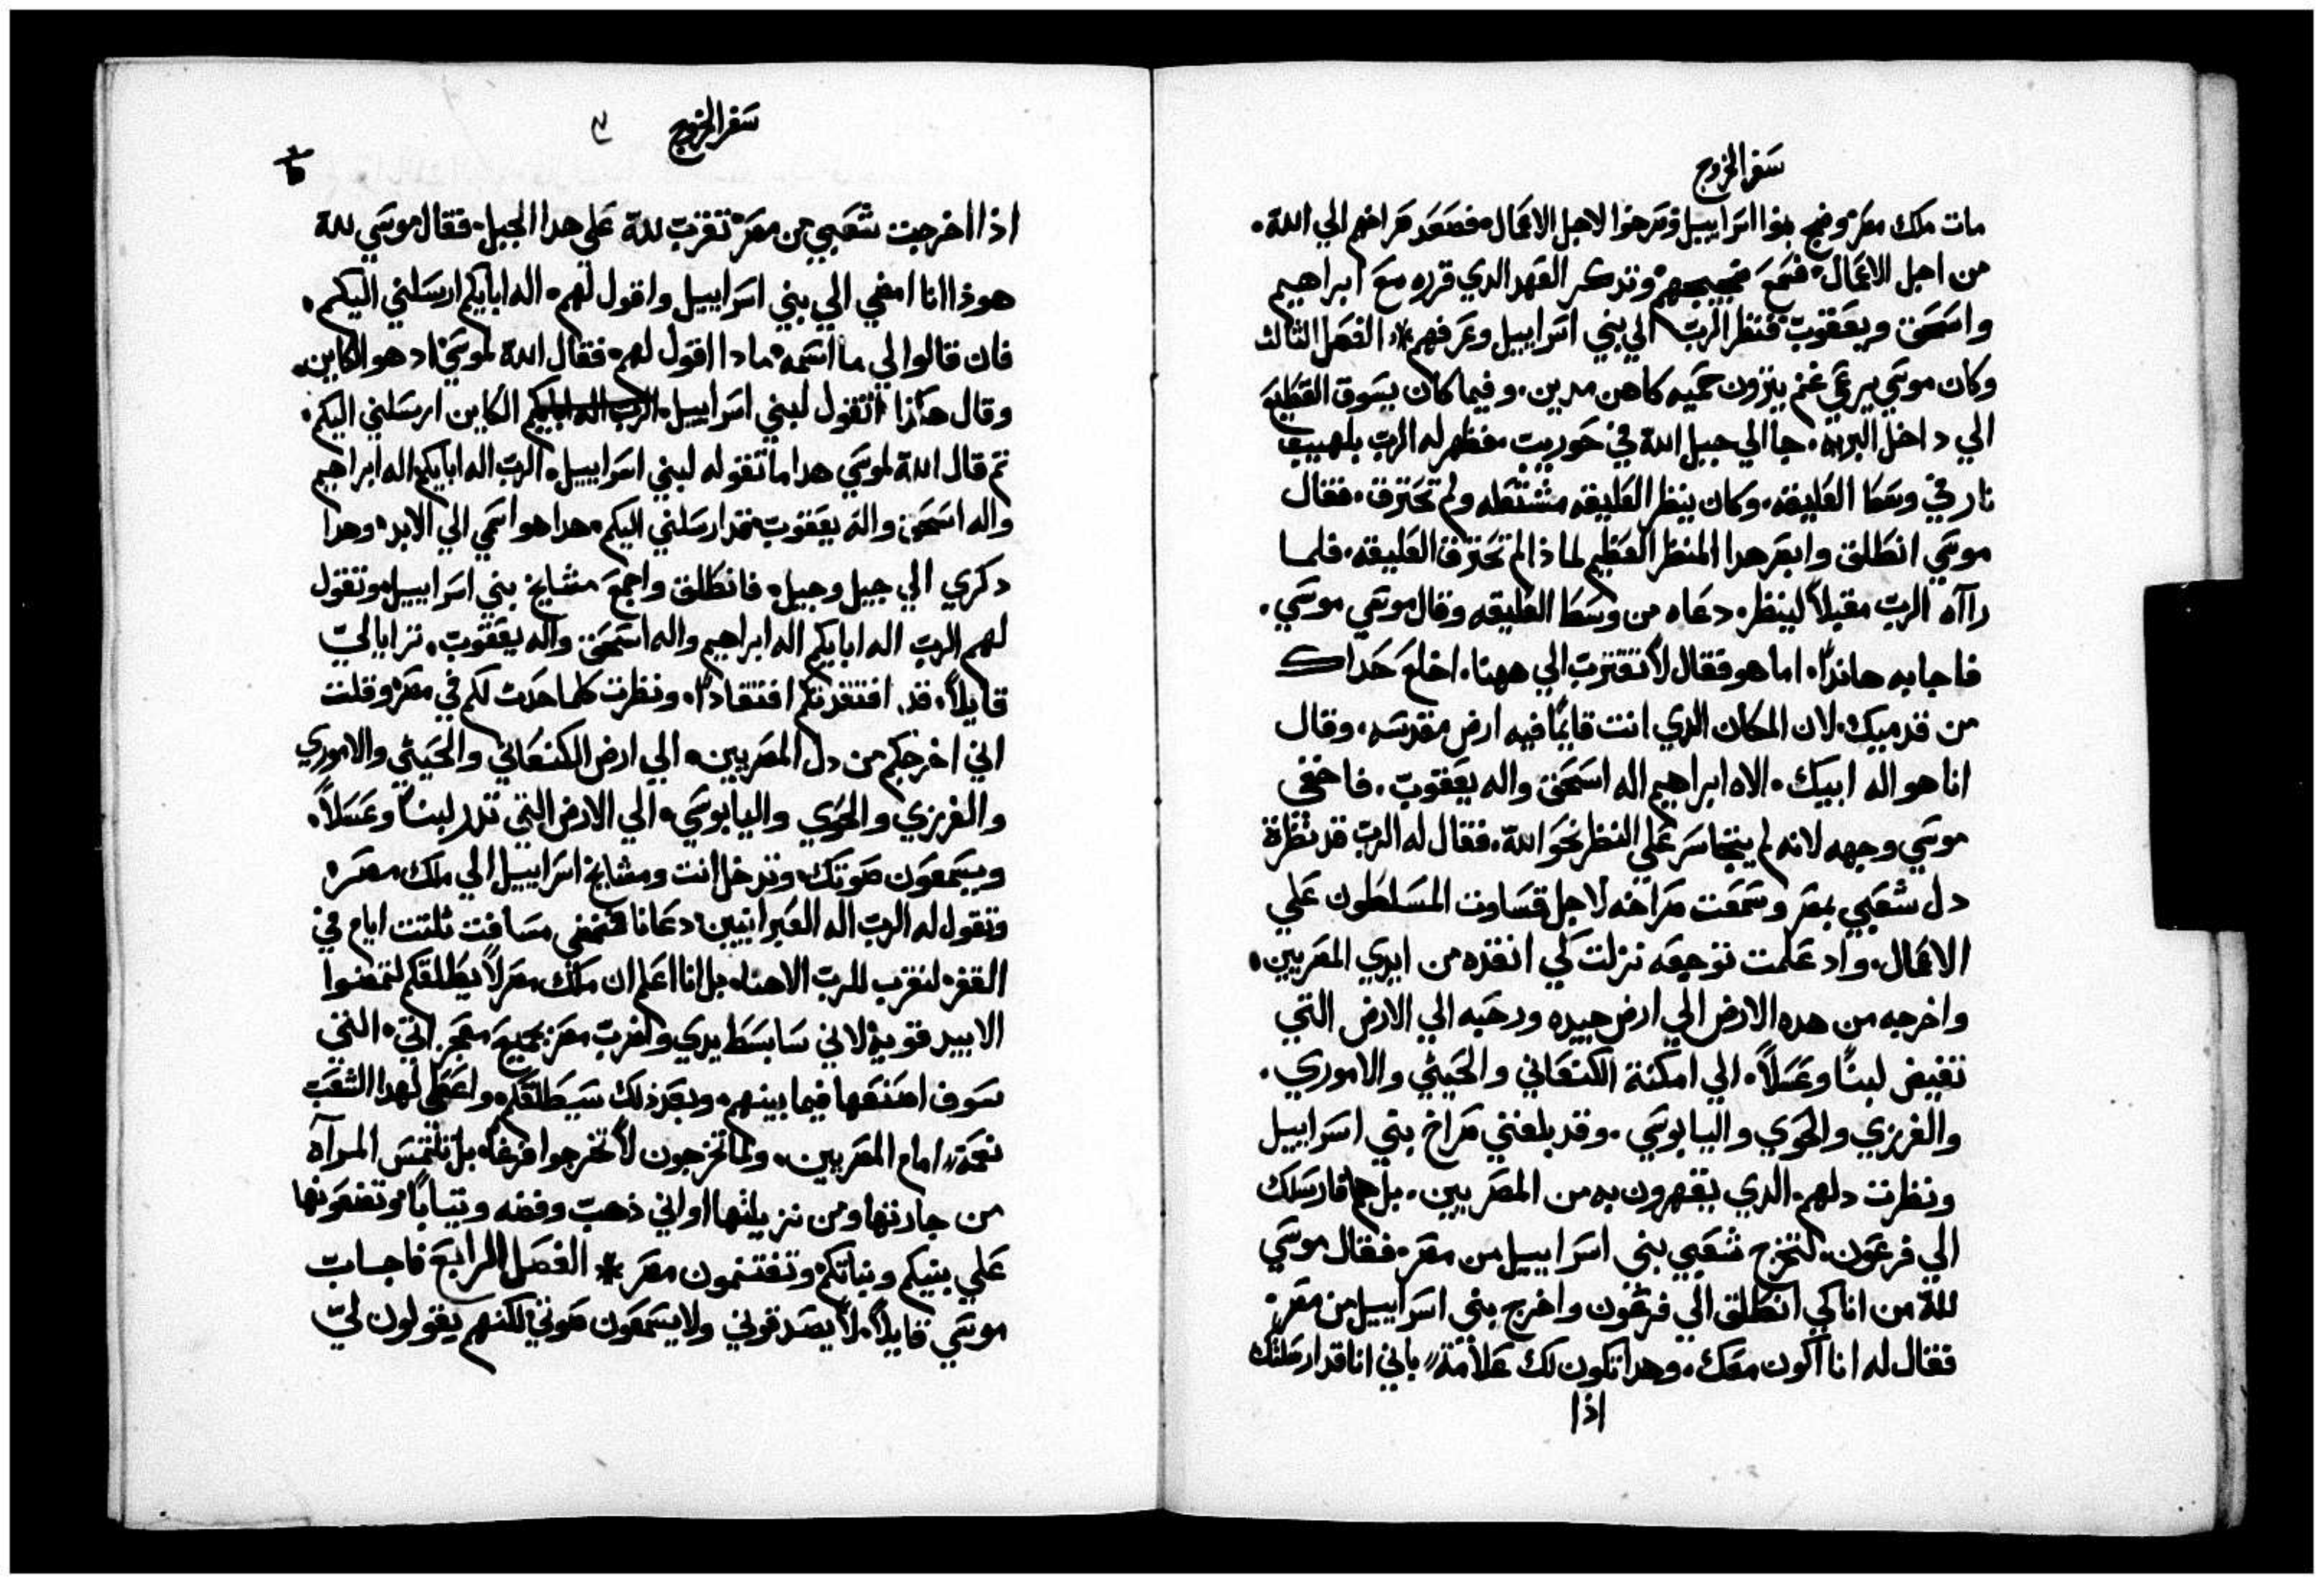 سفر الخروج
مات ملك مصر وضج بنوا اسراييل وصرخوا لاجل الاعمال فصعد صراخهم الي الله.
من اجل الاعمال فسمع ضجيجهم وتدكر العهد الدي قرره مع ابراهيم
واسحق ويعقوب فنظر الرب الي بني اسراييل وعرفهم * الفصل الثالث
وكان موسي يرعي غنم يترون حميه كاهن مدين. وفيما كان يسوق القطيع
الي داخل البريه. جا الي جبل الله في حوريت فظهر له الرب بلهيب
نار في وسط العليقه. وكان ينظر العليقه مشتعله ولم تحترق. فقال
موسي انطلق وابصر هدا المنظر العظيم لماذا لم تحترق العليقه. فلما
رااه الرب مقبلاً لينظر. دعاه من وسط العليقه وقال موسي موسي.
فاجابه هانذا. اما هو فقال لا تقترب الي ههنا. اخلع حداك
من قدميك. لان المكان الدي انت قايمًا فيه ارض مقدسه. وقال
انا هو اله ابيك. الاه ابراهيم اله اسحق واله يعقوب. فاخفي
موسي وجهه لانه لم يتجاسر علي النظر نحو الله. فقال له الرب قد نظرة
دل شعبي بمصر وسمعت صراخه لاجل قساوت المسلطون علي
الاعمال. واد علمت توجيعه نزلت لكي انقده من ايدي المصريين.
واخرجه من هده الارض الي ارض جيده ورحبه الي الارض التي
تفيض لبنًا وعسلاً. الي امكنة الكنعاني والحيثي والاموري.
والفرزي والحوي واليابوسي. وقد بلغني صراخ بني اسراييل
ونظرت دلهم. الدي يقهرون به من المصريين. بل هلم فارسلك
الي فرعون. لتخرج شعبي بني اسراييل من مصر. فقال موسي
لله من انا كي انطلق الي فرعون واخرج بني اسراييل من مصر.
فقال له انا اكون معك. وهدا تكون لك علامة باني انا قد ارسلتك
اذا
سفر الخروج
اذا اخرجت شعبي من مصر تقرب لله علي هدا الجبل. فقال موسي لله
هوذا انا امضي الي بني اسراييل واقول لهم. اله ابايكم ارسلني اليكم.
فان قالوا لي ما اسمه مادا اقول لهم. فقال الله لموسي اد هو الكاين.
وقال هكذا تقول لبني اسراييل. الرب اله ابايكم الكاين ارسلني اليكم.
تم قال الله لموسي هدا ما تقوله لبني اسراييل. الرب اله ابايكم اله ابراهيم
واله اسحق واله يعقوب قد ارسلني اليكم. هدا هو اسمي الي الابد. وهدا
دكري الي جيل وجيل. فانطلق واجمع مشايخ بني اسراييل وتقول
لهم الرب اله ابايكم اله ابراهيم واله اسحق واله يعقوب. ترايا لي
قايلاً. قد افتقدتكم افتقادًا. ونظرت كلما حدث لكم في مصر وقلت
اني اخرجكم من دل المصريين. الي ارض الكنعاني والحيثي والاموري
والفرزي والحوي واليابوسي. الي الارض التي تدر لبنًا وعسلاً.
ويسمعون صوتك. وتدخل انت ومشايخ اسراييل الي ملك مصر.
وتقول له الرب اله العبرانيين دعانا فنمضي مسافت ثلتت ايام في
القفر. لنقرب للرب الاهنا. بل انا اعلم ان ملك مصر لا يطلقكم لتمضوا
الا بيد قويه. لاني سابسط يدي واضرب مصر بجميع معجزاتي. التي
سوف اصنعها فيما بينهم. وبعد ذلك سيطلقكم. واعطي لهدا الشعب
نعمة امام المصريين. ولما تخرجون لا تخرجوا فرغًا. بل تلتمس المراه
من جارتها ومن نزيلتها اواني ذهب وفضه وتيابًا وتضعونها
علي بنيكم وبناتكم وتغتنمون مصر * الفصل الرابع فاجاب
موسي قايلاً. لا يصدقوني ولا يسمعون صوتي لكنهم يقولون لي